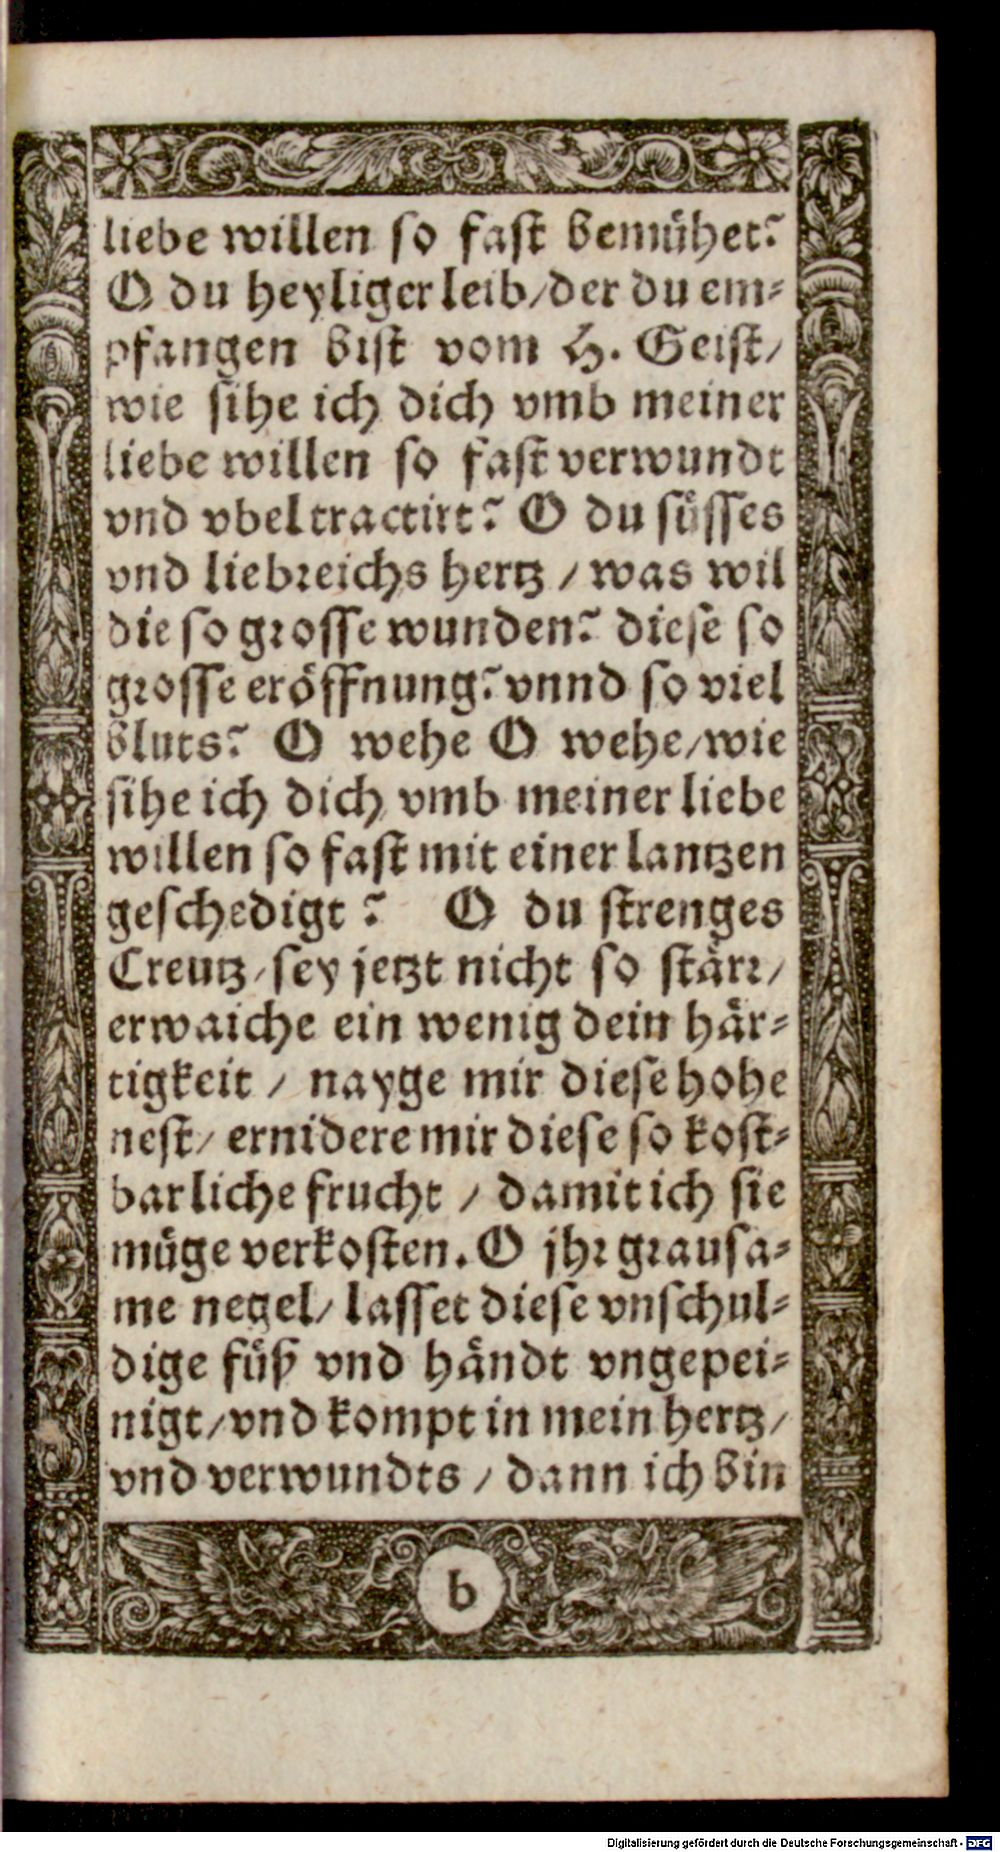 liebe willen so fast bemühet?
O du heyliger leib/der du em-
pfangen bist vom H. Geist/
wie sihe ich dich vmb meiner
liebe willen so fast verwundt
vnd vbel tractirt? O du süsses
vnd liebreichs hertz / was wil
die so grosse wunden? diese so
grosse eröffnung? vnnd so viel
bluts? O wehe O wehe/wie
sihe ich dich vmb meiner liebe
willen so fast mit einer lantzen
geschedigt? O du strenges
Creutz/sey jetzt nicht so stärr/
erwaiche ein wenig dein här-
tigkeit / nayge mir diese hohe
nest/ ernidere mir diese so kost-
barliche frucht / damit ich sie
müge verkosten. O jhr grausa-
me negel/ lasset diese vnschul-
dige füß vnd händt vngepei-
nigt/vnd kompt in mein hertz/
vnd verwundts / dann ich bin
b
Digitalisierung gefördert durch die Deutsche Forschungsgemeinschaft - DFG